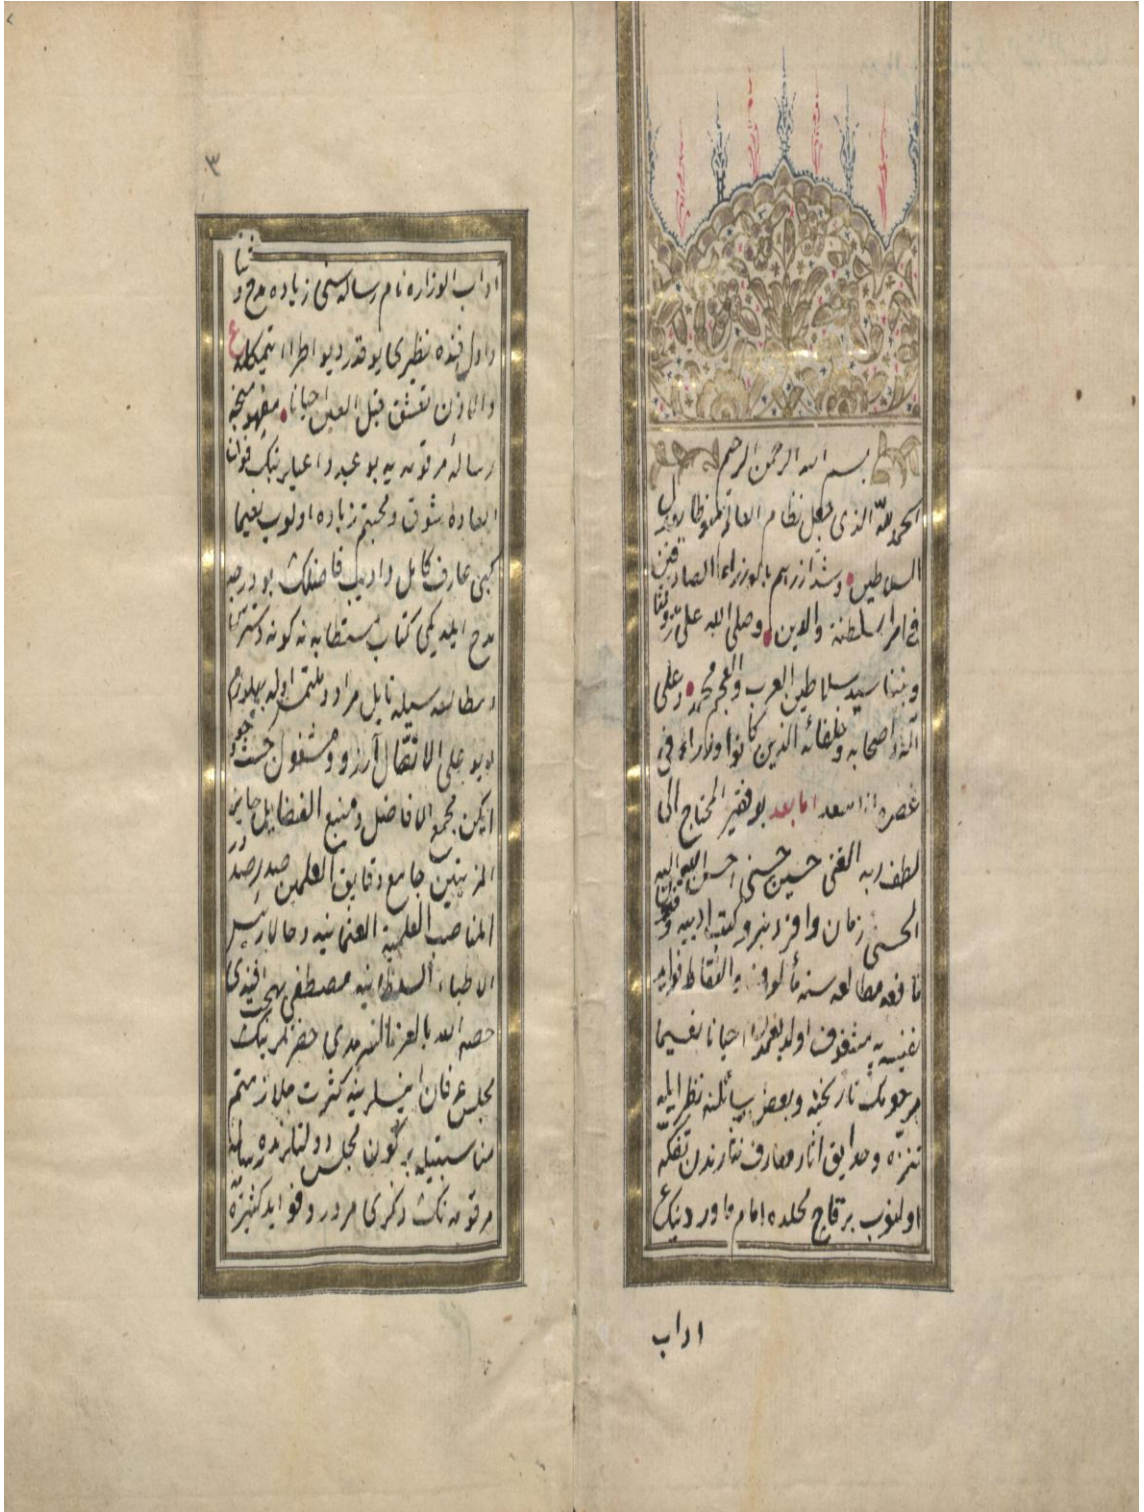 بسم الله الرحمن الرحيم
الحمد لله الذى جعل نظام العالم منوطا برأى
السلاطين وشد ازرهم بالوزراء الصادقين
فى امر السلطنة والدين وصلى الله على رسولنا
ونبينا سيد سلاطين العرب والعجم محمد وعلى
آله واصحابه وخلفائه الذين كانوا وزراء فى
عصره اما بعد بو فقير المحتاج الى
لطف ربه الغنى حسين حسنى احسن الله اليه
الحسنى زمان وافردنبرو كتب ادبيه و
نافعه مطالعه سنه مألوف والتقاط فوايد
نفيسه يه مشغوف اولديغمدن احيانا نعيما
مرحومك تاريخنه وبعض رسائلنه نظر ايله
تنزه وحدايق اثار معارف نثارندن تفكه
اولنوب برقاج محلده امام ماوردينك
اداب
٣
اداب الوزاره نام رساله سنى زياده مدح وثنا
واول فنده نظيرى يوقدر ديو اطرا ايتمكله ع
والاذن تعشق قبل العين احيانا مفهومنجه
رساله مرقومه يه بو عبد
العاده شوق ومحبتم زياده اولوب نعيما
كبى عارف كامل واديب فاضلك بو درجه
مدح ايلديكى كتاب مستطابه نه كونه دسترس
ومطالعه سيله نايل مراد وملتمس اوله بيلورم
ديو على الاتصال آرزو ومشغول جست وجو
ايكن مجمع الافاضل ومنبع الفضايل حايز
المزيتين جامع دقايق العلمين صدر صدور
المناصب العلمية العثمانيه وحالا رئيس
الاطباء السلطانيه مصطفى بهجت افندى
خصه الله بالعز السرمدى حضرتلرينك
مجلس عرفان انيسلرينه كثرت ملازمتم
مناسبتيله بر كون مجلس دولتلرنده رساله
مرقومه نك ذكرى مرور وفوايد كثيره